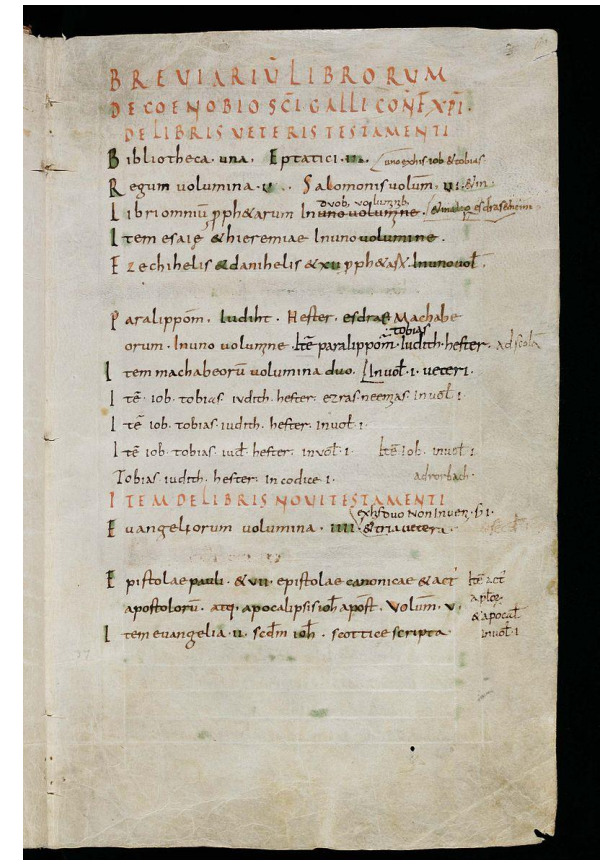 BREVIARIŪ LIBRORUM
DE COENOBIO SC̄I GALLI CONF̄ XPĪ.
DE LIBRIS VETERIS TESTAMENTI
Bibliotheca. una. Eptatici. uno exhis iob &tobias
Regum volumina. Salomonis volum̄. VI.
duob, voluminib,
Libri omniū pph&arum In uno volumine.
Item esaię &hieremiae In uno volumine.
Ezechihelis &danihelis &XII pph&arū. In uno vol̄.
Paralippom̄. Iudiht. Hester. esdras Machabe
tobias
orum. In uno volumine Itē paralippom̄. Iudith. hester. ad scolā
Item machabeorū volumina duo. In vol̄. I. veteri.
Itē iob. tobias. iudith. hester. ezras neemias. in vol̄ I.
Itē iob. tobias. iudith. hester. in vol̄. I.
Itē iob. tobias. iud̄. hester. in vol̄. I. Itē iob. in vol̄ I.
Tobias iudith. hester. in codice. I. ad rorbach.
ITEM DE LIBRIS NOVI TESTAMENTI
exhis duo Non Inveni
Evangeliorum volumina. IIII. &tria vetera.
Epistolae pauli. &VII. epistolae canonicae &act̄ Itē act̄
apostolorū. atq; apocalipsis ioh̄ apost̄. Volum̄. V. aplōr
&apocal̄
Item evangelia. II. scd̄m ioh̄. scottice scripta in vol̄. I